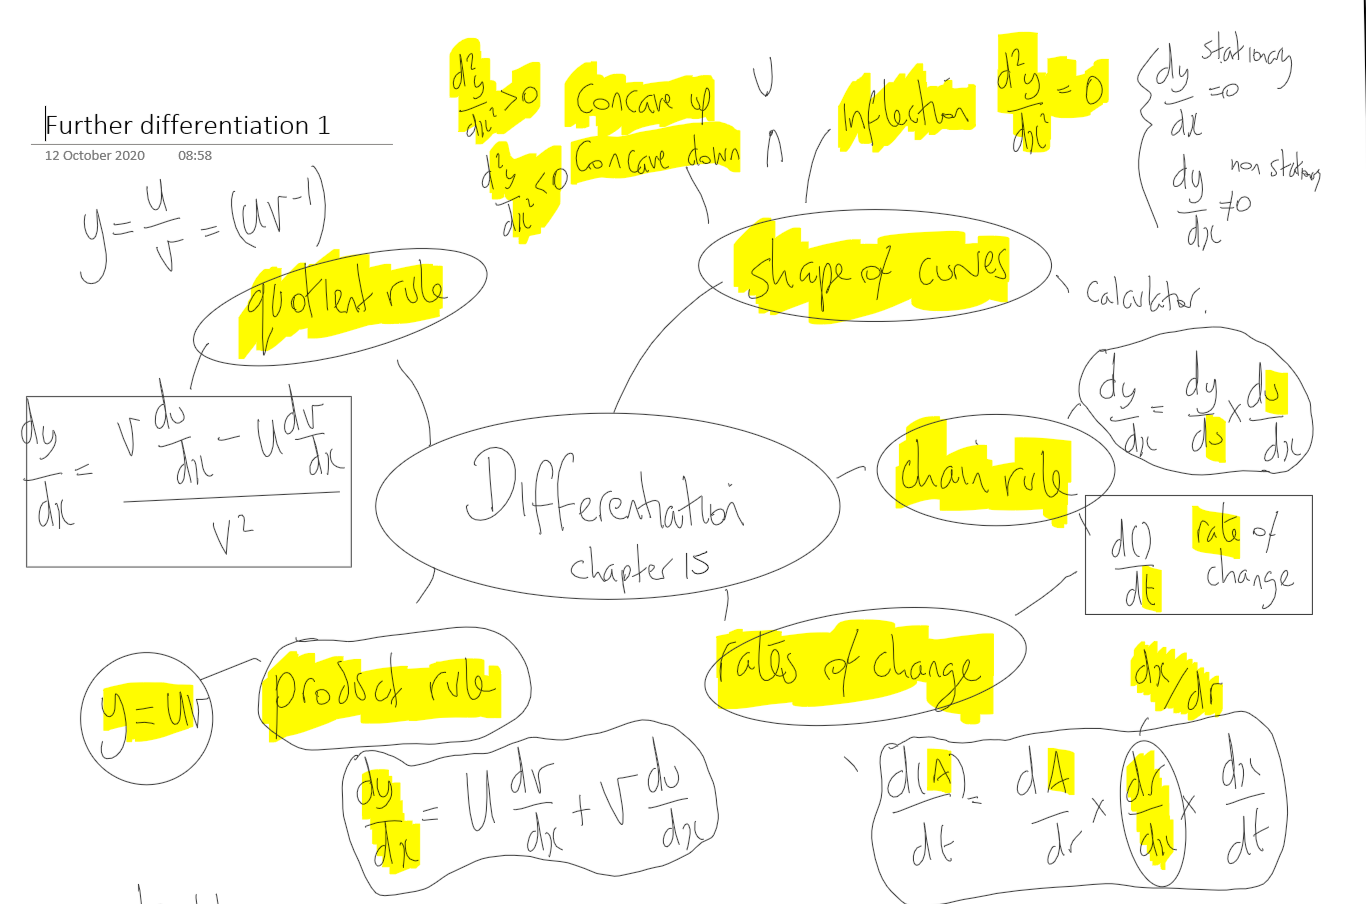 Further differentiation 1
12 October 2020 08:58
d²y/dx² > 0 Concave up ∪
d²y/dx² < 0 Concave down ∩
inflection d²y/dx² = 0
dy/dx = 0 stationary
dy/dx ≠ 0 non stationary
y = u/v = (uv⁻¹)
quotient rule
dy/dx = (v du/dx - u dv/dx)/v²
shape of curves
Calculator.
Differentiation
chapter 15
chain rule
dy/dx = dy/du × du/dx
d()/dt rate of
change
product rule
y = uv
dy/dx = u dv/dx + v du/dx
rates of change
dx/dr
d(A)/dt = dA/dr × dr/dx × dx/dt